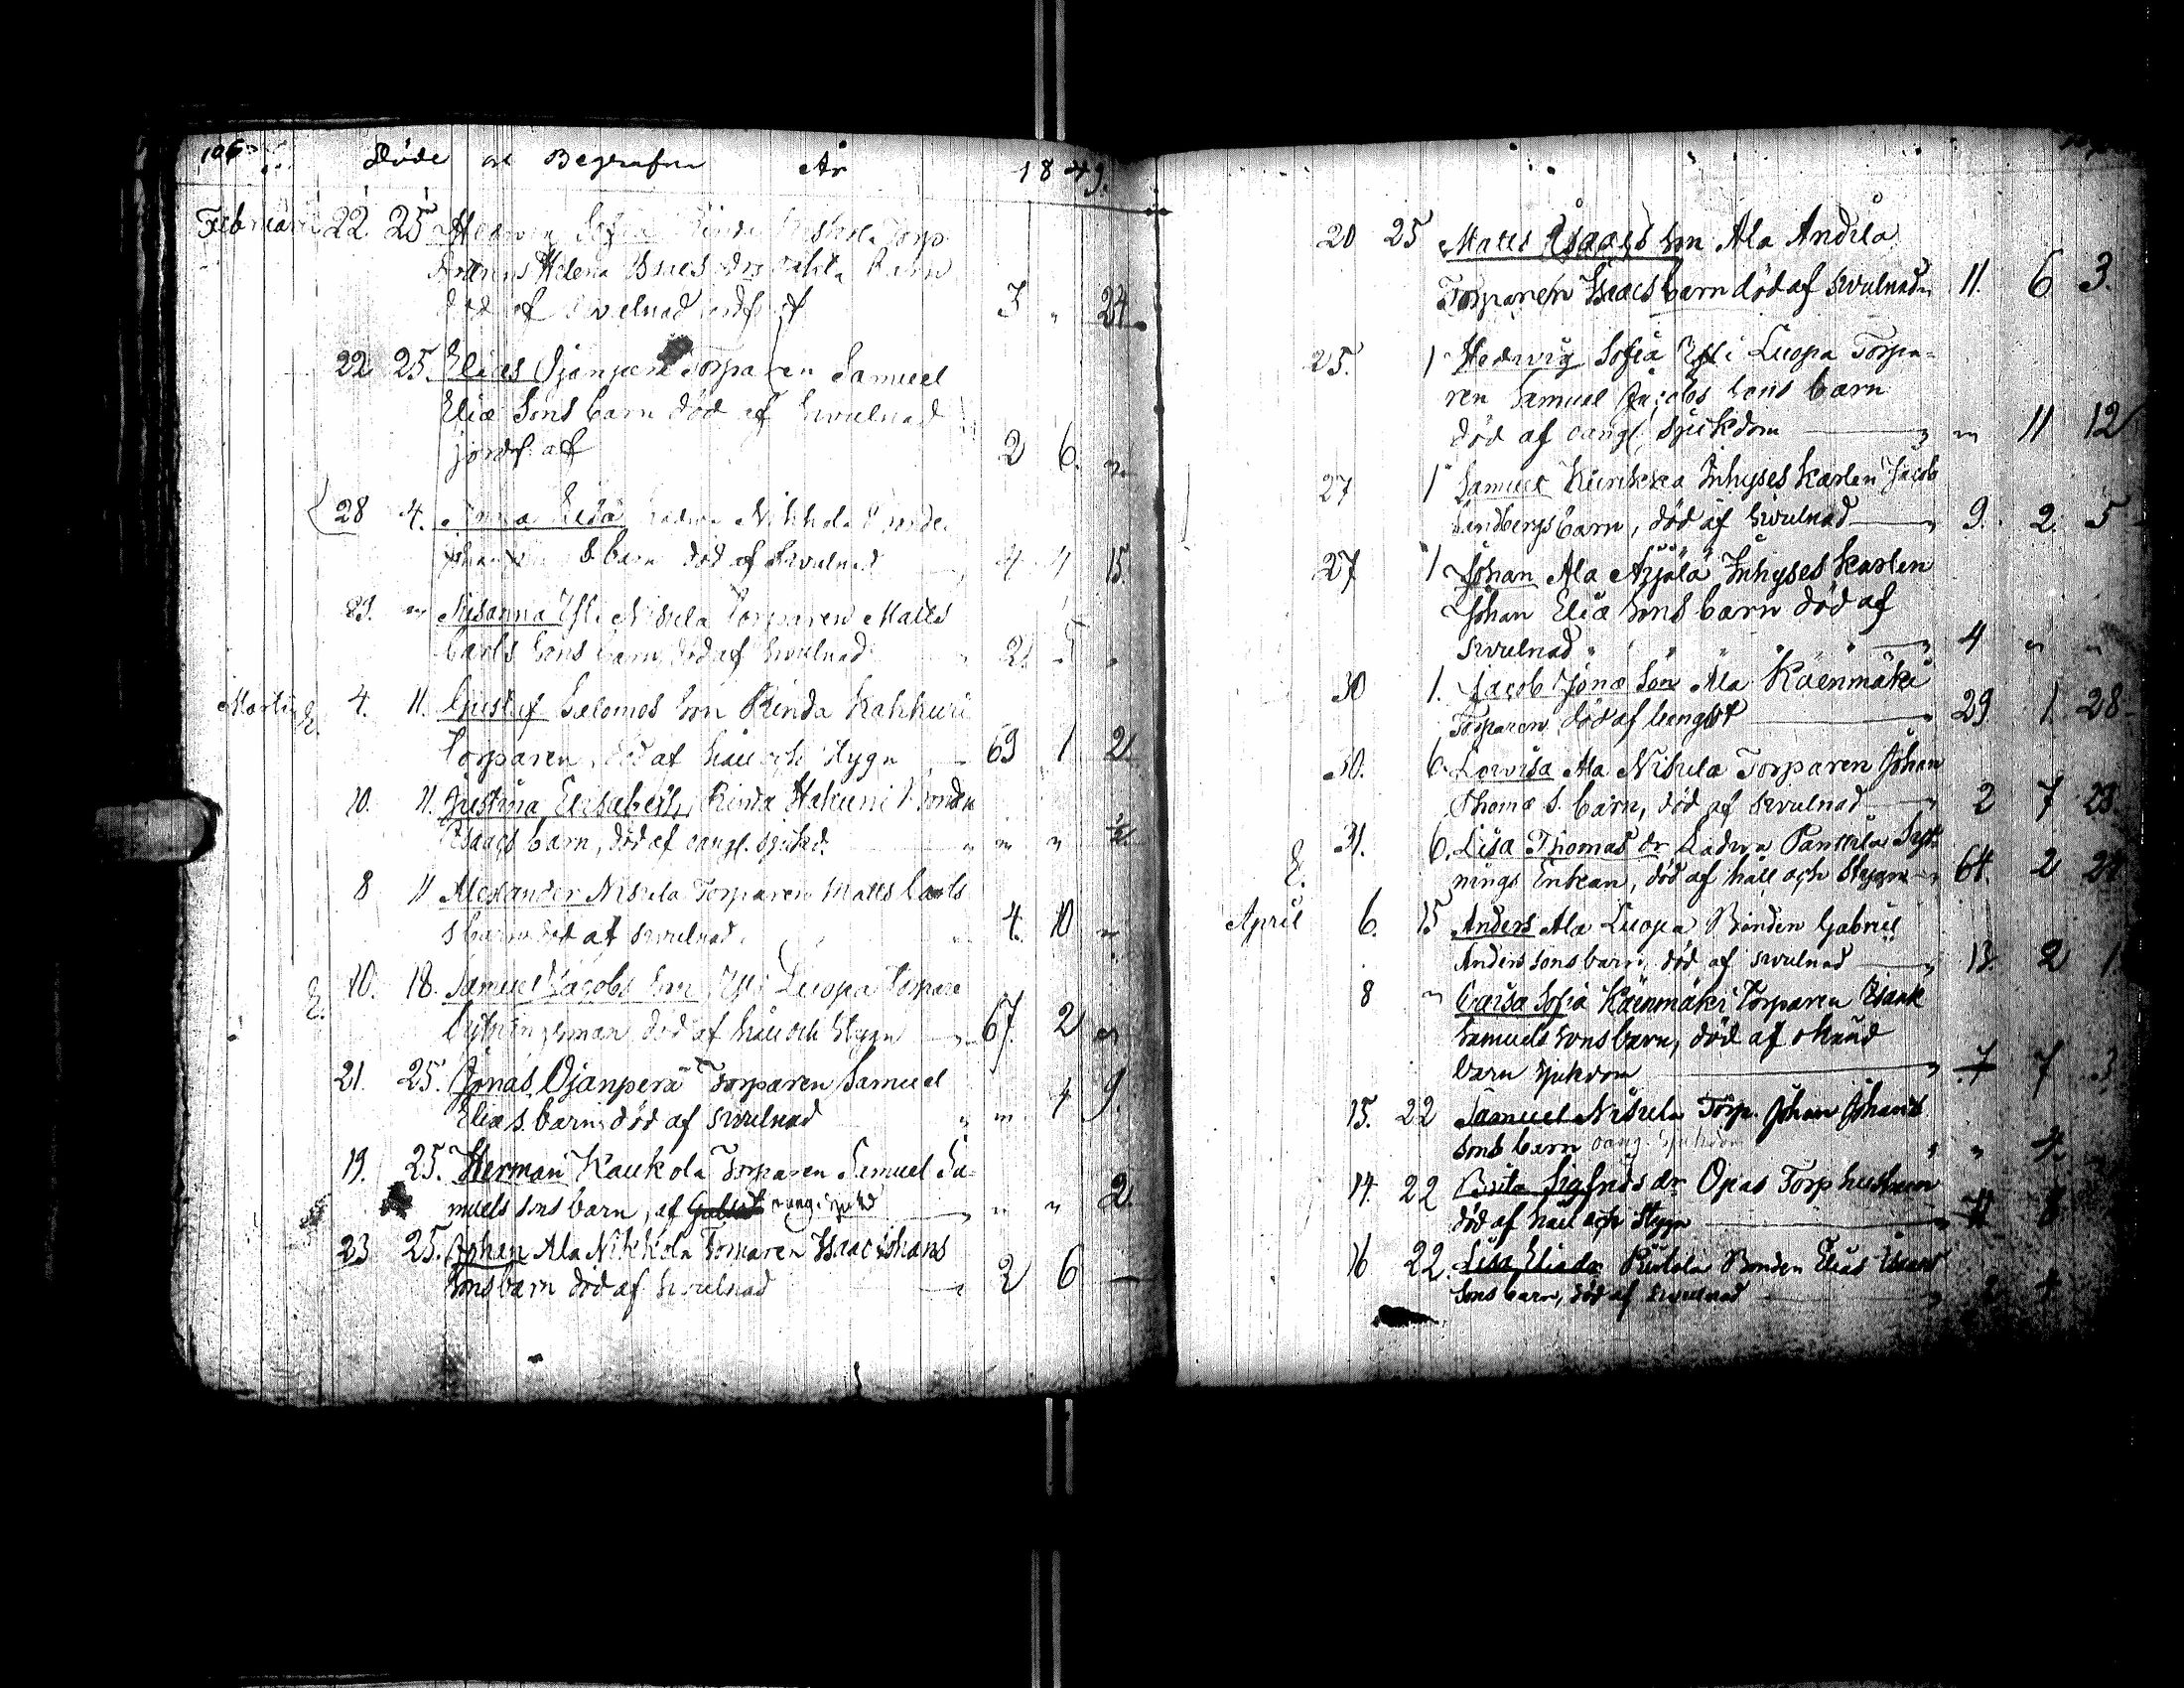 106 Döde och Begrafne År 1849.
Februari 22 25 Hedwig Sofia Rinda Torp
Helena Isacs dr barn
död af Swulnad 3 " 24
22 25. Elias Ojanperä Torparen Samuel
Eliæ Sons barn död af Swulnad
jordf. 2 6. "
28 4. Anna Lisa Ladwa Nikkola
s. barn död af Swulnad 4 4 15.
" Susanna Yli Nisula Torparen Matts
Carls Sons barn, död af Swulnad 2. 5 "
Martii E. 4. 11. Gustaf Salomos Son Rinda Kahkuri
Torparen, död af håll och Stygn 69 1 2.
10. 11. Justina Elisabeth, Rinda Hakuni Bonden
Isaacs barn, död af oangf. sjukd. " "
8 11 Alexander Nisula Torparen Matts Carls
s barn död af Swulnad. 4. 10 "
E. 10. 18. Samuel Jacobs Son Yli Luopa Torpare
Sytningsman död af håll och Stygn 67. 2 "
21. 25. Jonas Ojanperä Torparen Samuel
Eliæ s. barn, död af Swulnad " 4 9.
19. 25. Herman Kaukola Torparen Samuel Sa-
muels sons barn, af oang. sjukd " " 2.
23 25. Johan Ala Nikkola Torparen Isaac Johans
Sons barn död af Swulnad 2 6 —
20 25 Matts Isaacs Son Ala Andila
Torparen Isaacs barn död af Swulnad 11. 6 3.
25. 1 Hedwig Sofia Yli Luopa Torpa-
ren Samuel Jacobs Sons barn
död af oangf. sjukdom " 11 12
27 1 Samuel Kurikka Inhyses Karlen Jacob
Lindbergs barn, död af Swulnad 9. 2. 5
27 1 Johan Ala Äijälä Inhyses Karlen
Johan Eliæ Sons barn död af
Swulnad " " " " 4 " "
30 1. Jacob Jonæ Son Ala Käenmäki
Torparen död af lungsot 29 1 28
30. 6. Lowisa Ala Nisula Torparen Johan
Thomæ S. barn, död af Swulnad 2 7 23.
E. 31. 6. Lisa Thomas dr Ladwa Panttila Syt-
nings Enkan, död af håll och Stygn 64. 2
April 6. 15 Anders Ala Luopa Bonden Gabriel
Anders sons barn, död af Swulnad 13. 2 1.
8 " Caisa Sofia Käenmäki Torparen Isaak
Samuels sons barn, död af okänd
barn sjukdom 7 7 3
15. 22 Samuel Nisula Torp. Johan Johans
sons barn oang. sjukdom " " 4.
14. 22 Brita Sigfrids dr Opas Torp hustrun
död af håll och Stygn
16 22. Lisa Eliæ dr Riutola Bonden Elias Isaacs
Sons barn, död af Swulnad